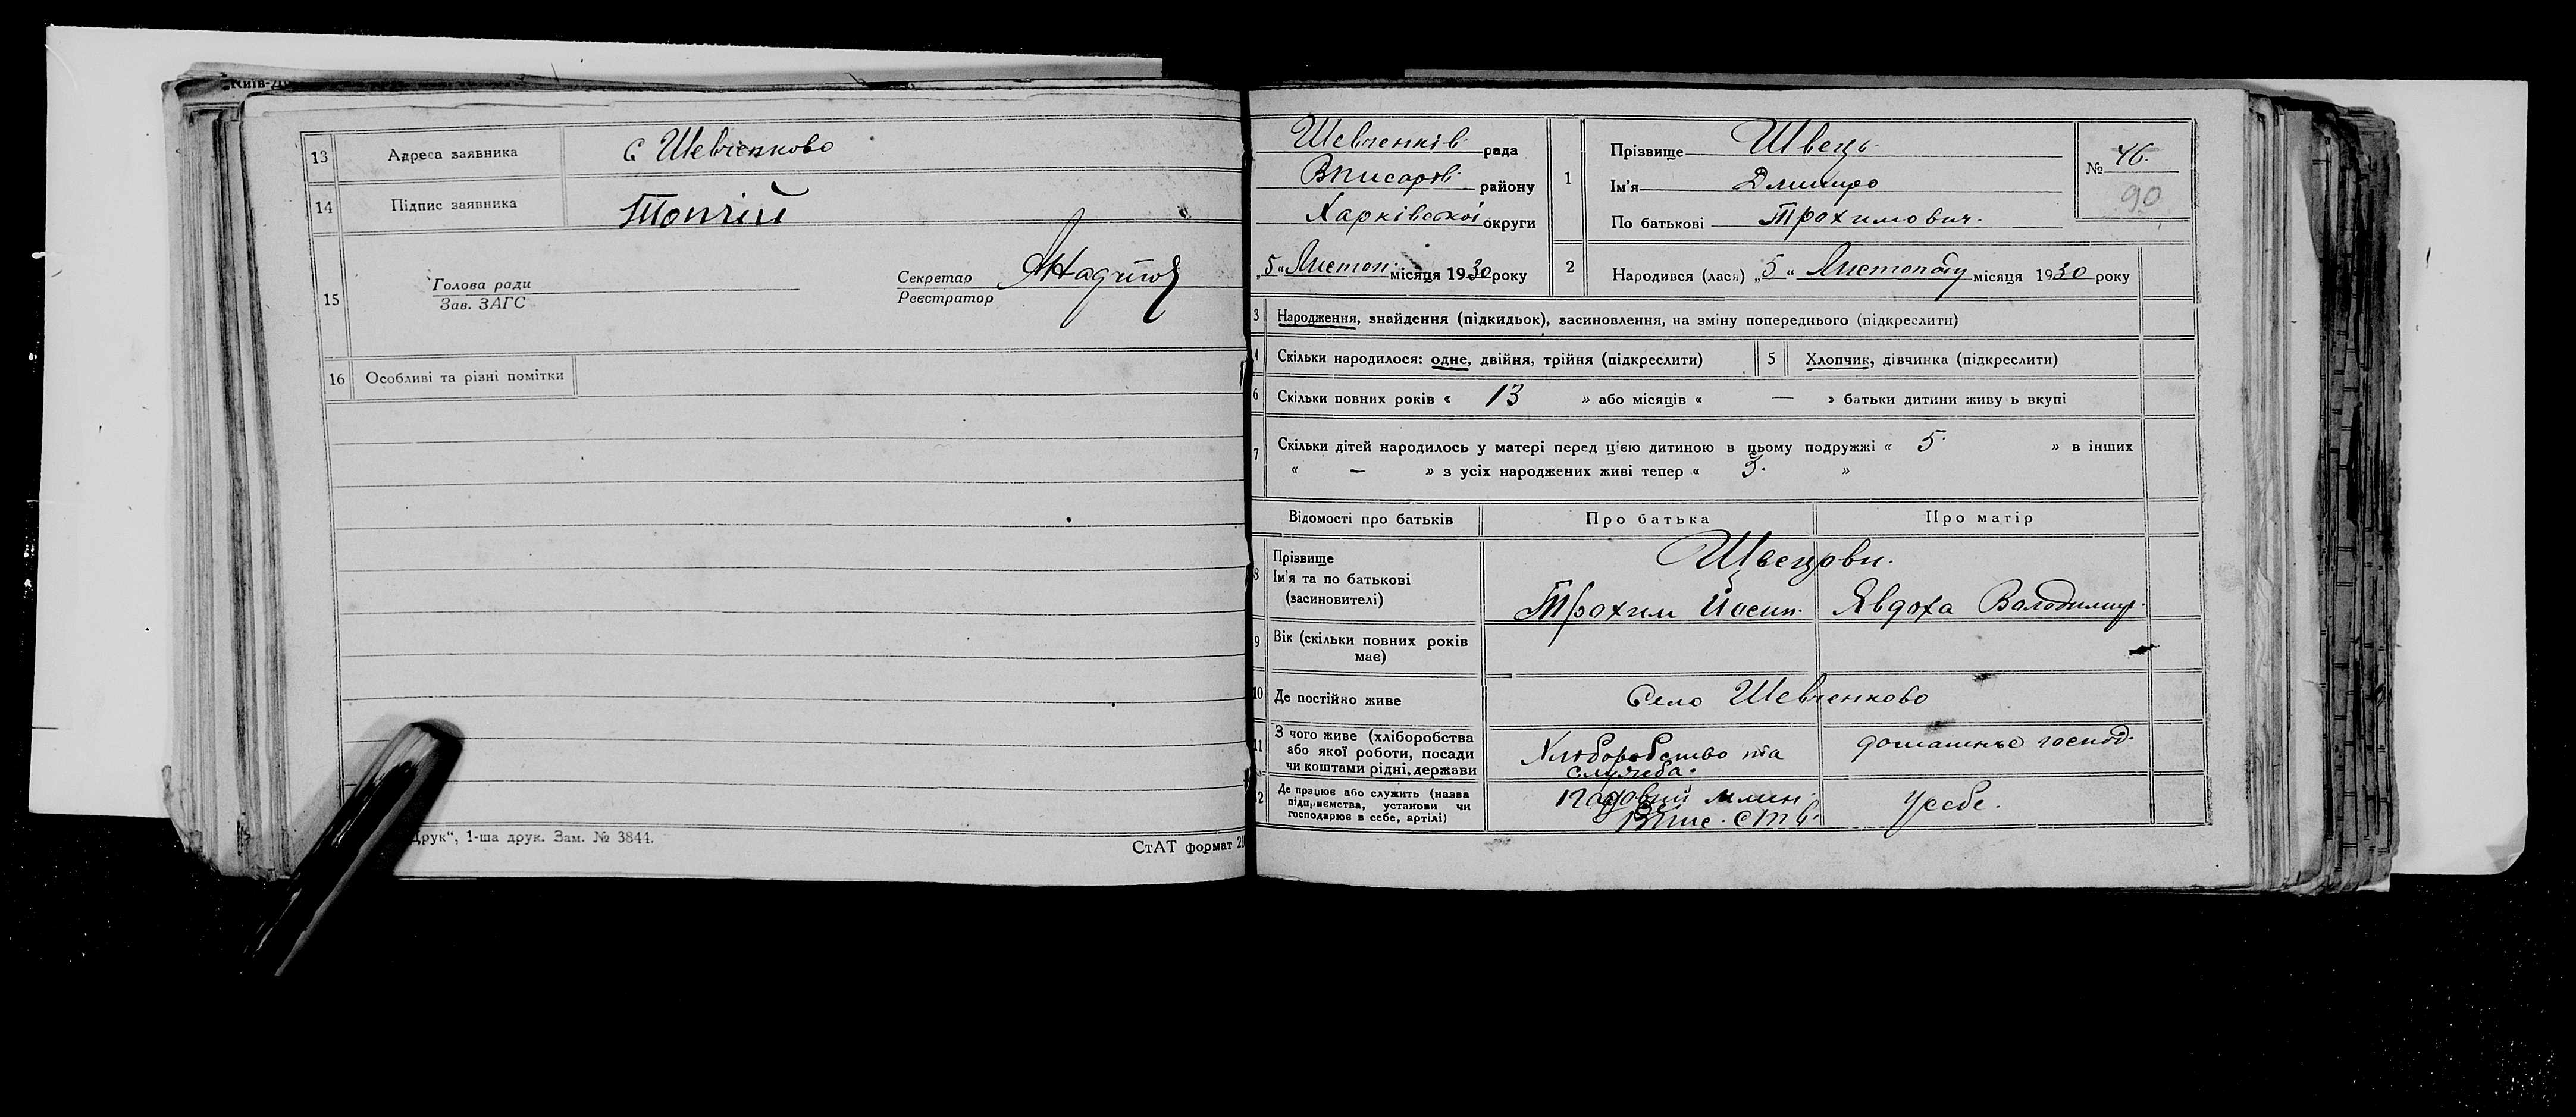 Київ-Д
13 Адреса заявника с Шевченково
14 Підпис заявника Топчій
15 Голова ради
Зав. ЗАГС
Секретар
Реєстратор
16 Особливі та різні помітки
Друк“, 1-ша друк. Зам. № 3844.
СтАТ формат 2
Шевченків. рада
району
Харківської округи
„5“ Листоп. місяця 1930 року
1 Прізвище Швець.
Ім'я Дмитро
По батькові Трохимович.
№ 46.
90
2 Народився (лася) „5“ Листопаду місяця 1930 року
3 Народження, знайдення (підкидьок), засиновлення, на зміну попереднього (підкреслити)
4 Скільки народилося: одне, двійня, трійня (підкреслити) 5 Хлопчик, дівчинка (підкреслити)
6 Скільки повних років « 13 » або місяців « — » батьки дитини живу ь вкупі
7 Скільки дітей народилось у матері перед цією дитиною в цьому подружжі « 5. » в інших
« — » з усіх народжених живі тепер « 3. »
Відомості про батьків Про батька Про матір
8 Прізвище Швецови.
Ім'я та по батькові
(засиновителі) Трохим Йосип. Явдоха Володимир.
9 Вік (скільки повних років
має)
10 Де постійно живе Село Шевченково
11 З чого живе (хліборобства
або якої роботи, посади
чи коштами рідні, держави
Хліборобство та
служба.
домашнье господ.
12 Де працює або служить (назва
підприємства, установи чи
господарює в себе, артілі)
млин
усебе.